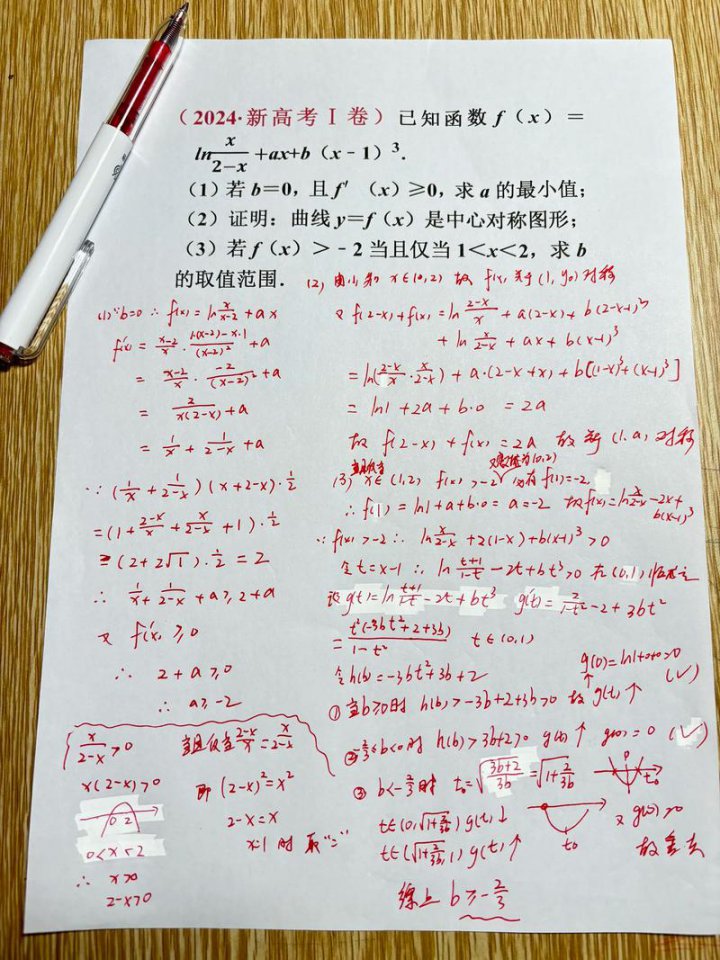 （2024·新高考Ⅰ卷）已知函数 f（x）＝
ln x/(2−x) +ax+b（x﹣1）³.
（1）若 b＝0，且 f′（x）≥0，求 a 的最小值；
（2）证明：曲线 y＝f（x）是中心对称图形；
（3）若 f（x）＞﹣2 当且仅当 1＜x＜2，求 b
的取值范围.
(1) ∵b=0 ∴ f(x) = ln x/(x-2) + ax
f'(x) = (x-2)/x · (1·(x-2)-x·1)/(x-2)² + a
= (x-2)/x · (-2)/(x-2)² + a
= 2/(x(2-x)) + a
= 1/x + 1/(2-x) + a
∵ (1/x + 1/(2-x)) (x+2-x)·1/2
= (1 + (2-x)/x + x/(2-x) + 1)·1/2
≥ (2+2√1)·1/2 = 2
∴ 1/x + 1/(2-x) + a ≥ 2+a
又 f'(x) ≥ 0
∴ 2+a ≥ 0
∴ a ≥ -2
x/(2-x) > 0
x(2-x) > 0
0 2
0<x<2
∴ x>0
2-x>0
当且仅当 (2-x)/x = x/(2-x)
即 (2-x)² = x²
2-x = x
x=1 时 取"="
(2) 由(1)知 x∈(0,2) 故 f(x) 关于 (1, y₀) 对称
又 f(2-x) + f(x) = ln (2-x)/x + a(2-x) + b(2-x-1)³
+ ln x/(2-x) + ax + b(x-1)³
= ln((2-x)/x · x/(2-x)) + a·(2-x+x) + b[(1-x)³+(x-1)³]
= ln1 + 2a + b·0 = 2a
故 f(2-x) + f(x) = 2a 故关于 (1, a) 对称
当且仅当
(3) x∈(1,2) f(x) > -2 必有 f(1) = -2
∴ f(1) = ln1+a+b·0 = a = -2 故f(x) = ln x/(2-x) -2x+
b(x-1)³
∵ f(x) > -2 ∴ ln x/(2-x) + 2(1-x) + b(x-1)³ > 0
令 t = x-1 ∴ ln (t+1)/(1-t) - 2t + bt³ > 0 在 (0,1) 恒成立
设 g(t) = ln (t+1)/(1-t) - 2t + bt³ g'(t) = 2/(1-t²) - 2 + 3bt²
= t²(-3bt²+2+3b)/(1-t²) t∈(0,1)
令 h(b) = -3bt²+3b+2
g(0) = ln1+0+0 = 0
(✓)
① 当 b≥0 时 h(b) > -3b+2+3b > 0 故 g(t) ↑
② -2/3 ≤ b<0 时 h(b) > 3b+2 ≥ 0 g(t) ↑ g(0) = 0 (✓)
③ b<-2/3 时 t₀ = √((3b+2)/(3b)) = √(1+2/(3b))
0
t₀
t∈(0, √(1+2/(3b))) g(t) ↓
t₀
t∈(√(1+2/(3b)), 1) g(t) ↑
故舍去
综上 b ≥ -2/3